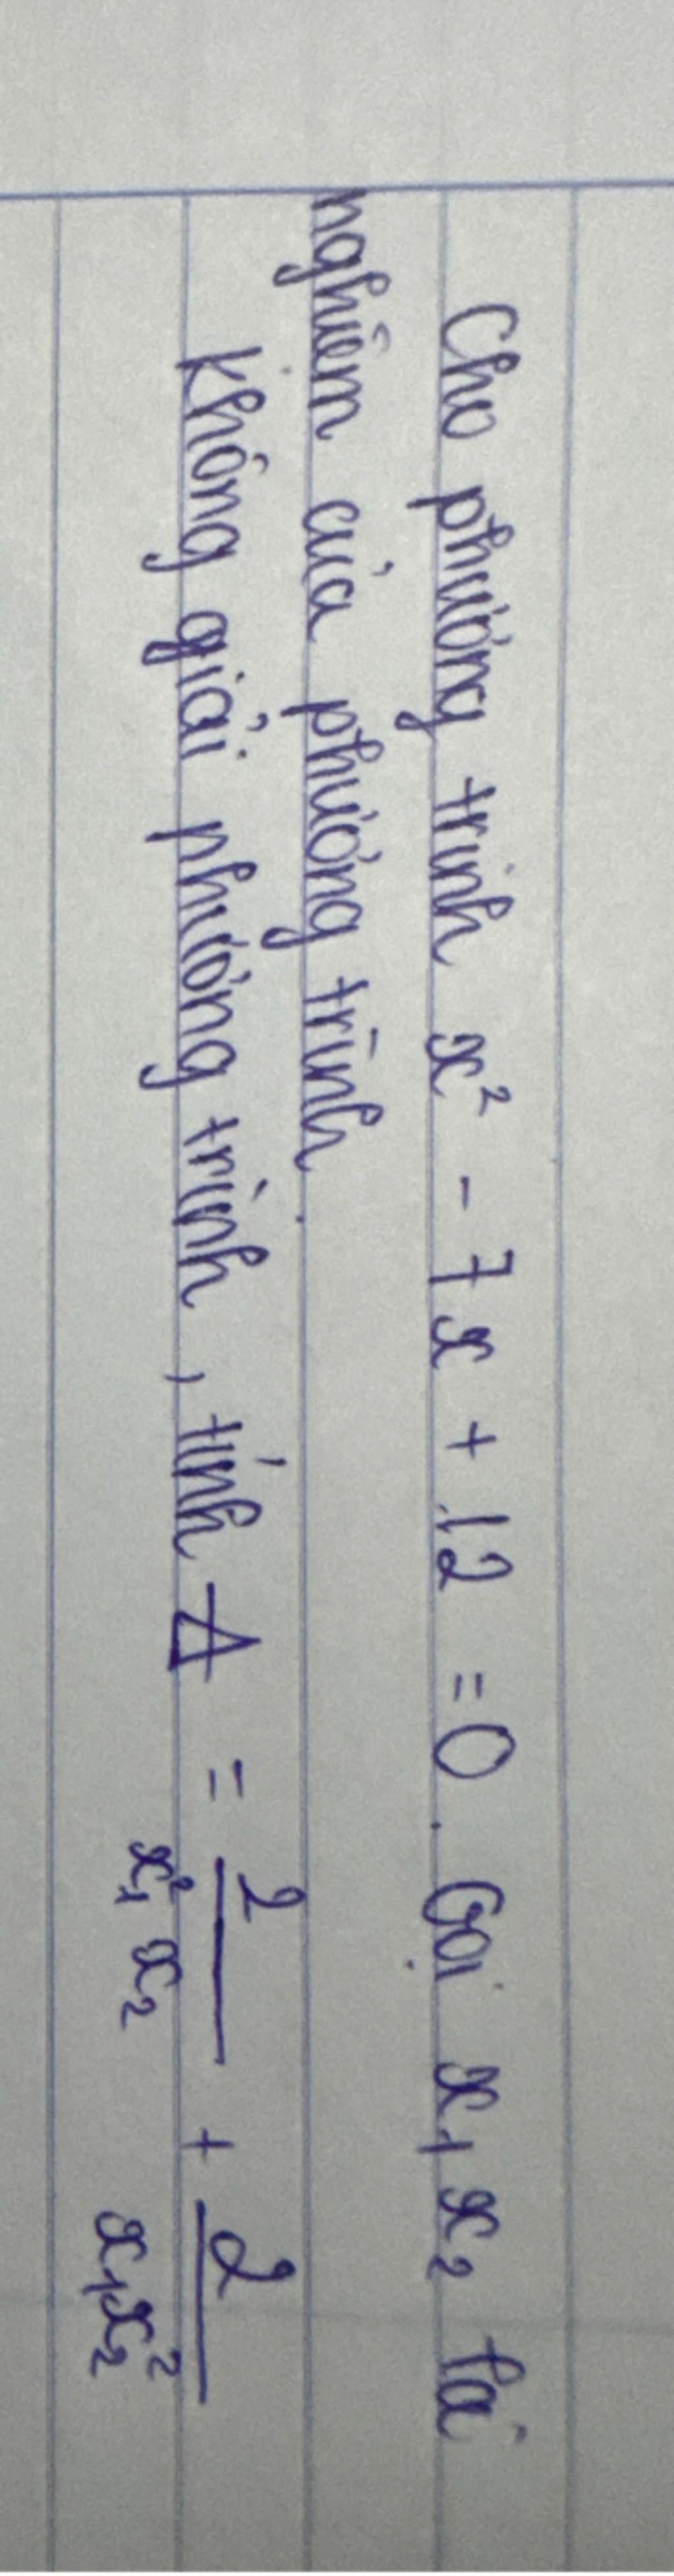 Cho phương trình x² - 7x + 12 = 0. Gọi x₁ x₂ là
nghiệm của phương trình.
Không giải phương trình, tính A = 2/(x₁² x₂) + 2/(x₁x₂²)